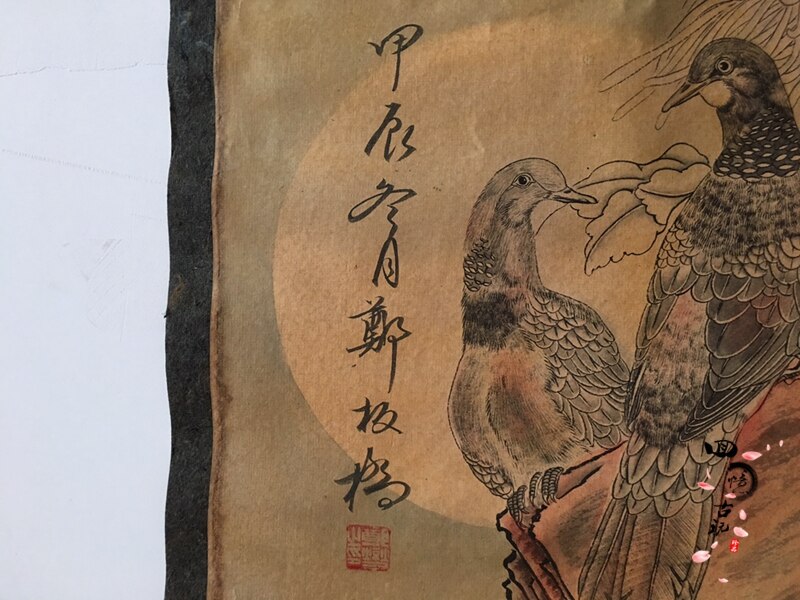 甲辰冬月鄭板橋
古玩